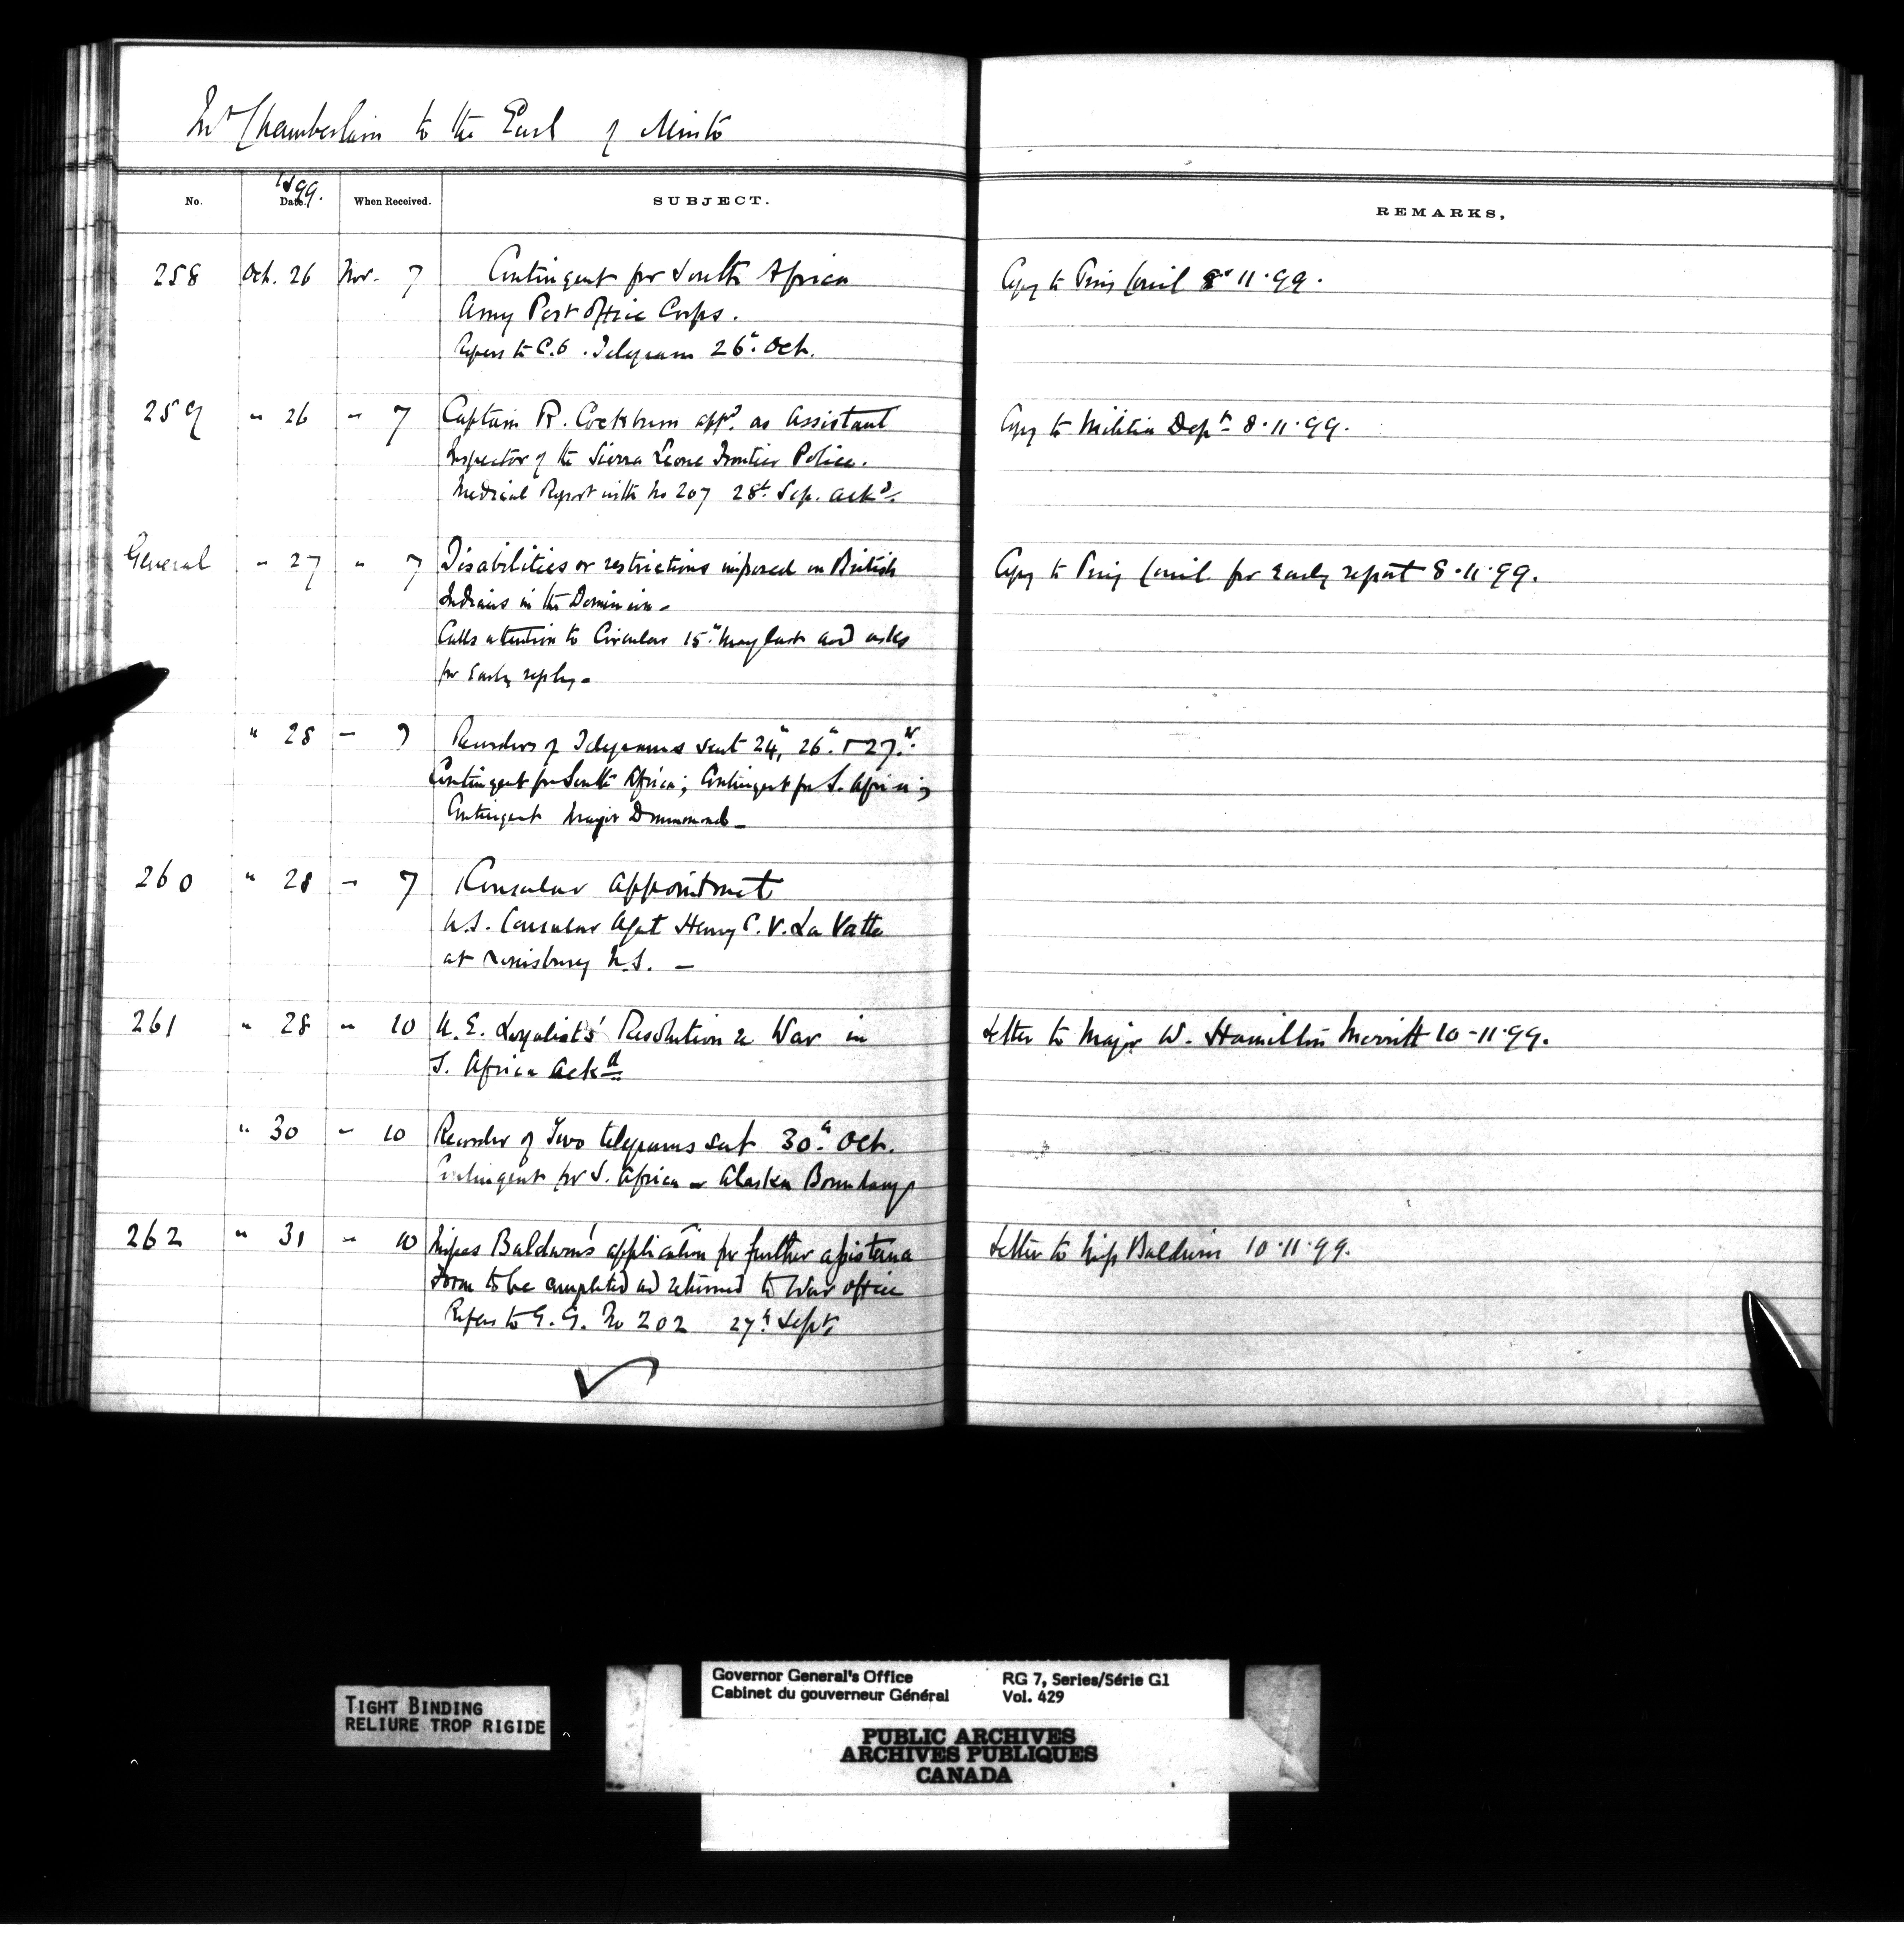 Mr Chamberlain to the Earl of Minto
No. 1899. Date. When Received. SUBJECT. REMARKS.
258 Oct. 26 Nov. 7 Contingent for South Africa Copy to Privy Council 8 11.99.
Army Post Office Corps.
Refers to C.O. Telegram 26th Oct.
259 " 26 " 7 Captain R. Cockburn appd. as Assistant Copy to Militia Dept 8.11.99.
Inspector of the Sierra Leone Frontier Police.
Medical Report with No 207 28th Sep. ackd.
General " 27 " 7 Disabilities or restrictions imposed on British Copy to Privy Council for early report 8.11.99.
Indians in the Dominion.
Calls attention to Circular 15th May last and asks
for early reply.
" 28 " 7 Recorders of Telegrams sent 24th, 26th & 27th.
Contingent for South Africa; Contingent for S. Africa;
Contingent Major Drummond
260 " 28 " 7 Consular Appointment
U.S. Consular Agent Henry C. V. La Vatte
at Louisburg N.S.
261 " 28 " 10 U. E. Loyalists' Resolution re War in Letter to Major W. Hamilton Merritt 10-11.99.
S. Africa Ackd
" 30 " 10 Recorder of Two telegrams sent 30th Oct.
Contingent for S. Africa Alaska Boundary
262 " 31 " 10 Misses Baldwin's application for further assistance Letter to Miss Baldwin 10.11.99.
Form to be completed and returned to War Office
Refers to G. G. No 202 27th Sept
TIGHT BINDING
RELIURE TROP RIGIDE
Governor General's Office RG 7, Series/Série G1
Cabinet du gouverneur Général Vol. 429
PUBLIC ARCHIVES
ARCHIVES PUBLIQUES
CANADA